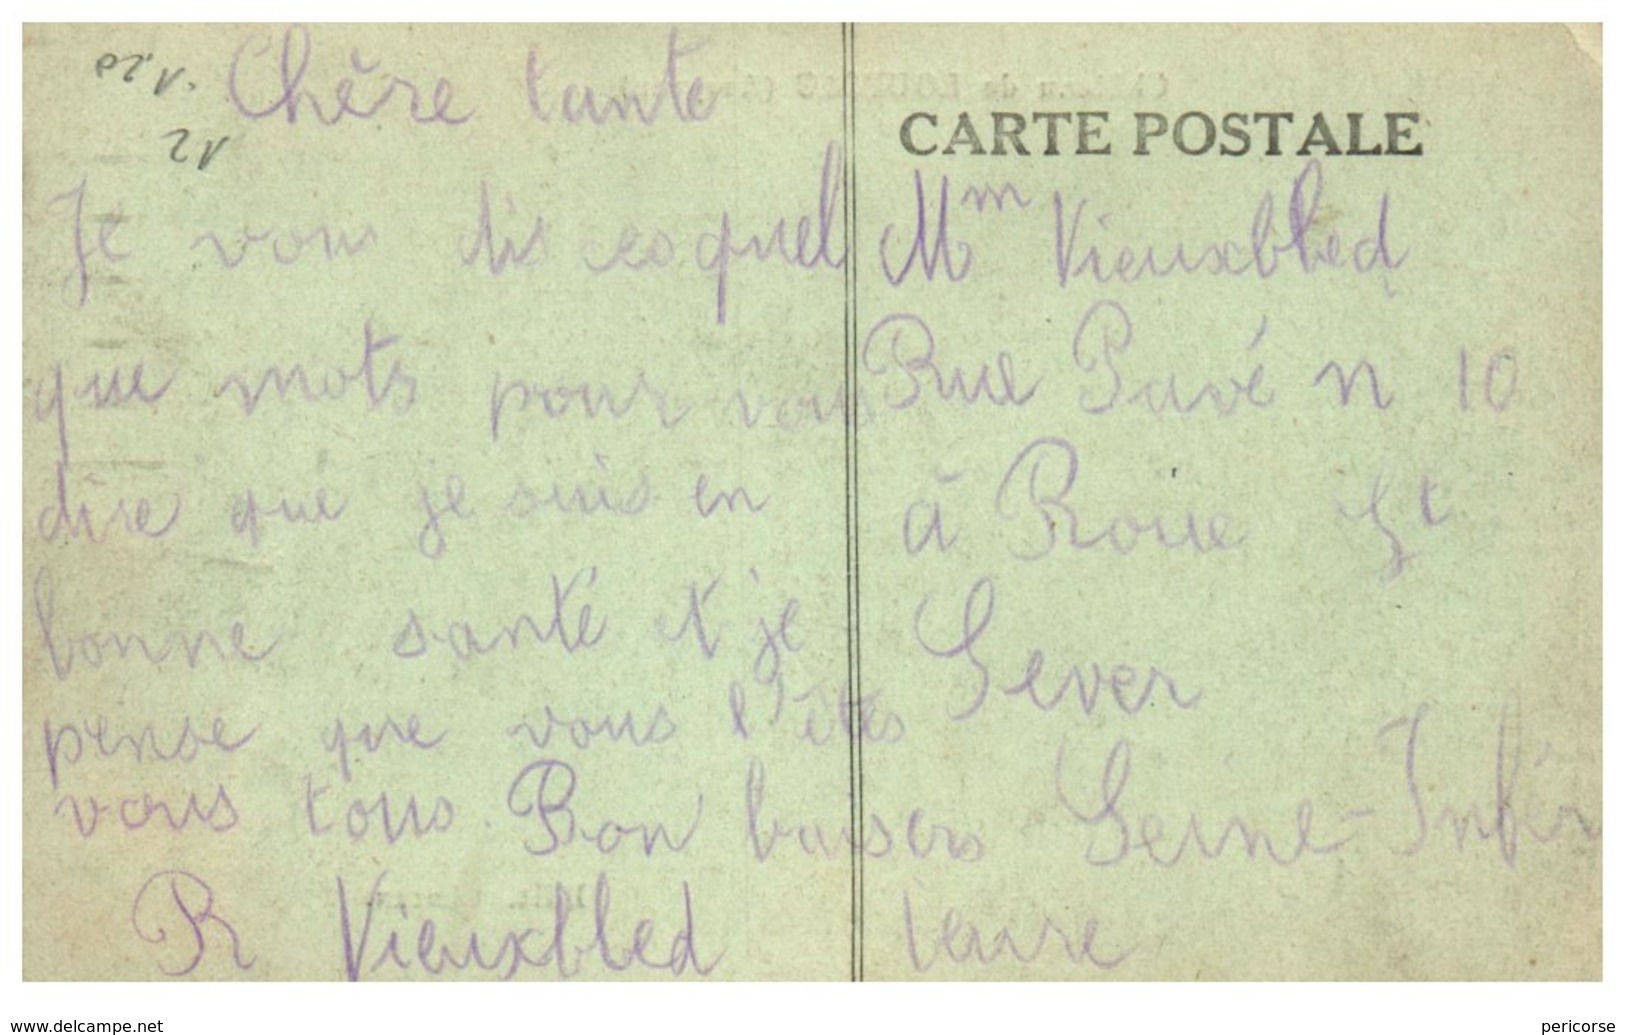 1,20
12
Chère tante
Je vous dis ces quel
que mots pour vous
dire que je suis en
bonne santé et je
pense que vous l'êtes
vous tous. Bon baisers
R Vieuxbled
CARTE POSTALE
Mm Vieuxbled
Rue Pavé n 10
à Roue St
Sever
Seine-Infér
ieure
www.delcampe.net
pericorse